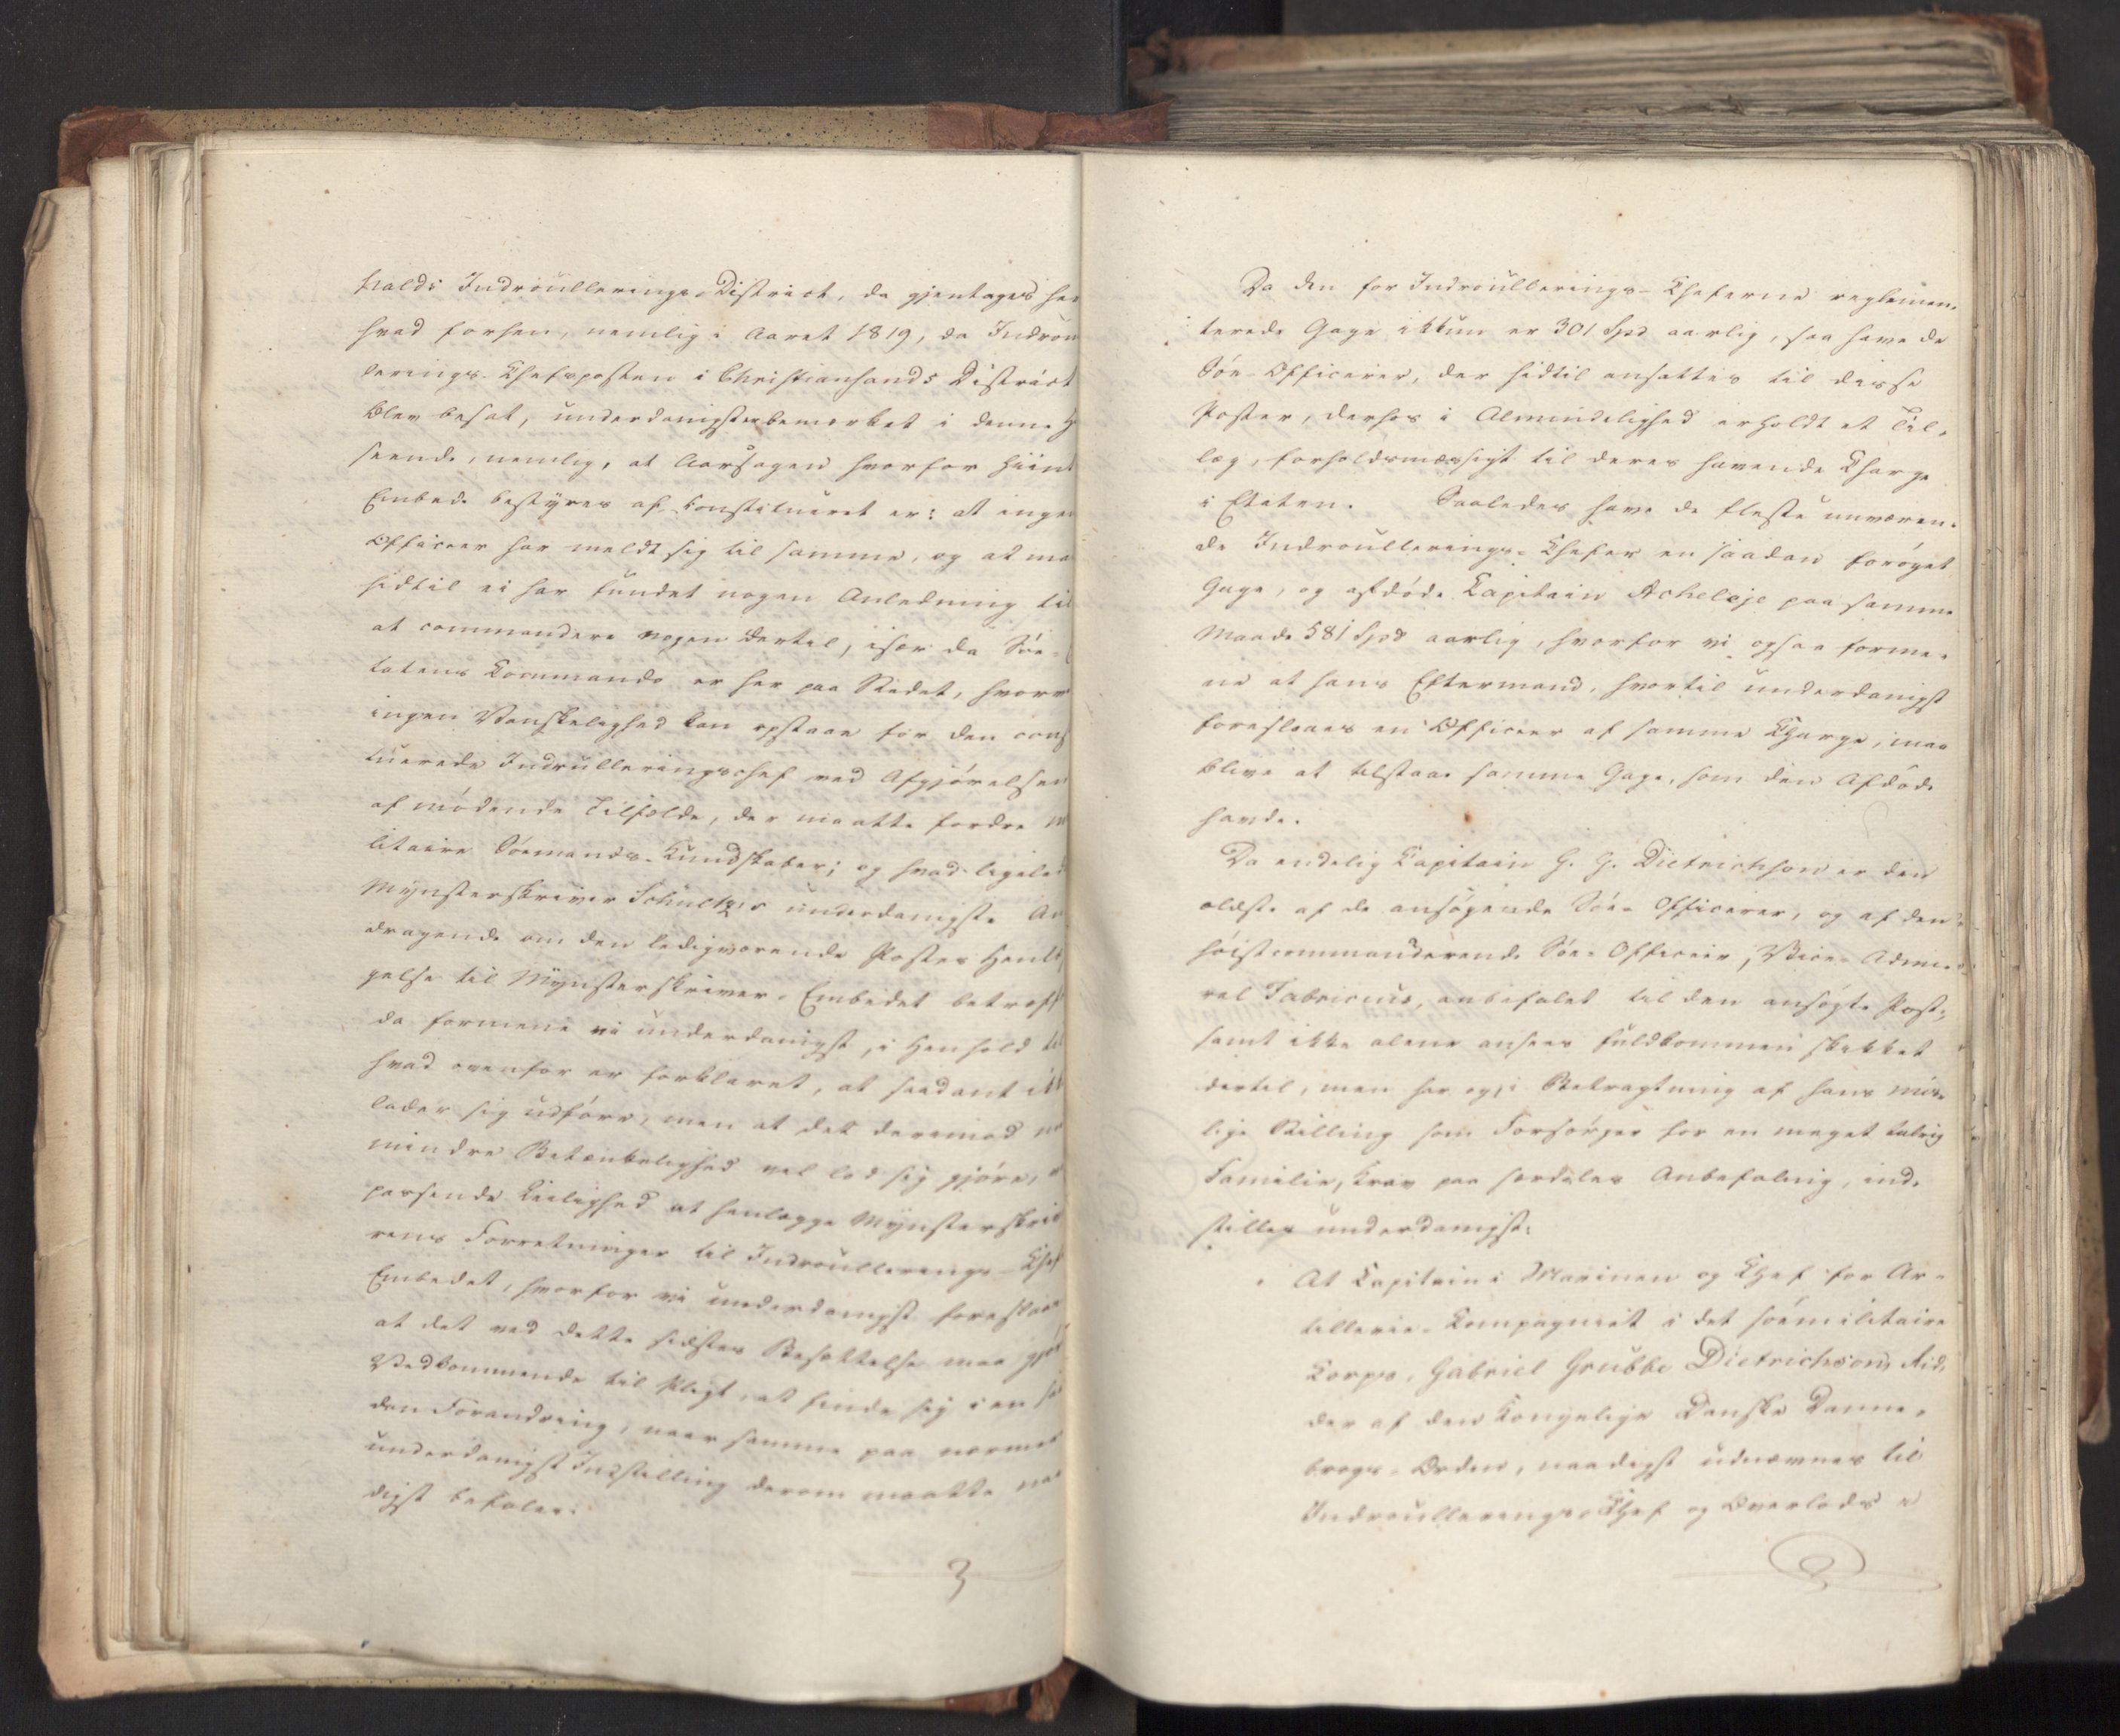 halds Indroullerings-District, da gjentages her
hvad forhen, nemlig i Aaret 1819, da Indroul
lerings-Chefsposten i Christiansands District
blev besat, underdanigst er bemærket i denne H
seende, nemlig, at Aarsagen hvorfor hiint
Embede bestyres af Constitueret er: at ingen
Officeer har meldt sig til samme, og at ma
hidtil ei har fundet nogen Anledning til
at commandere nogen dertil, især da Søe-
tatens Commando er her paa Stedet, hvorv
ingen Vanskelighed kan opstaae for den cons
tuerede Indrulleringschef ved Afgjørelsen
af mødende Tilfælde, der maatte fordre m
litaire Sømands-Kundskaber; og hvad ligeled
Mynsterskriver Schultzes underdanigste An
dragende om den ledigværende Postes Henlæ
gelse til Mynsterskriver-Embedet betræffe
da formene vi underdanigst, i Henhold til
hvad ovenfor er forklaret, at saadant ikk
lader sig udføre, men at det derimod
mindre Betænkelighed vel lod sig gjøre,
passende Leilighed at henlægge Mynsterskri
rens Forretninger til Indroullerings-Chef
Embedet, hvorfor vi underdanigst foreslaae
at det ved dette sidstes Besættelse maa gjør
Vedkommende til Pligt, at finde sig i en saa
dan Forandring, naar samme paa nærmer
underdanigst Indstilling derom maatte naa
digst befales.
Da den for Indroullerings-Cheferne reglemen-
terede Gage ikkun er 301 Spd aarlig, saa have de
Søe-Officerer, der hidtil ansattes til disse
Poster, derhos i Almindelighed erholdt et Til-
læg, forholdsmæssigt til deres havende Charge
i Etaten. Saaledes have de fleste nuværen-
de Indroullerings-Chefer en saadan forøget
Gage, og afdøde Capitain Acheløje paa samme
Maade 581 Spd aarlig, hvorfor vi ogsaa forme-
ne at hans Eftermand, hvortil underdanigst
foreslaaes en Officeer af samme Charge, maa
blive at tilstaae samme Gage, som den Afdøde
havde.
Da endelig Capitain G. G. Dietrichson er den
ældste af de ansøgende Søe-Officerer, og af den
høistcommanderende Søe-Officeer, Vice-Admi-
ral Fabricius, anbefalet til den ansøgte Post,
samt ikke alene ansees fuldkommen skikket
dertil, men har og, i Betragtning af hans mis-
lige Stilling som Forsørger for en meget talrig
Familie, Krav paa særdeles Anbefaling, ind-
stilles underdanigst:
At Capitain i Marinen og Chef for Ar-
tillerie-Compagniet i det søemilitaire
Corps, Gabriel Grubbe Dietrichson, Rid-
der af den Kongelige Danske Danne-
brogs-Orden, naadigst udnævnes til
Indroullerings-Chef og Overlods